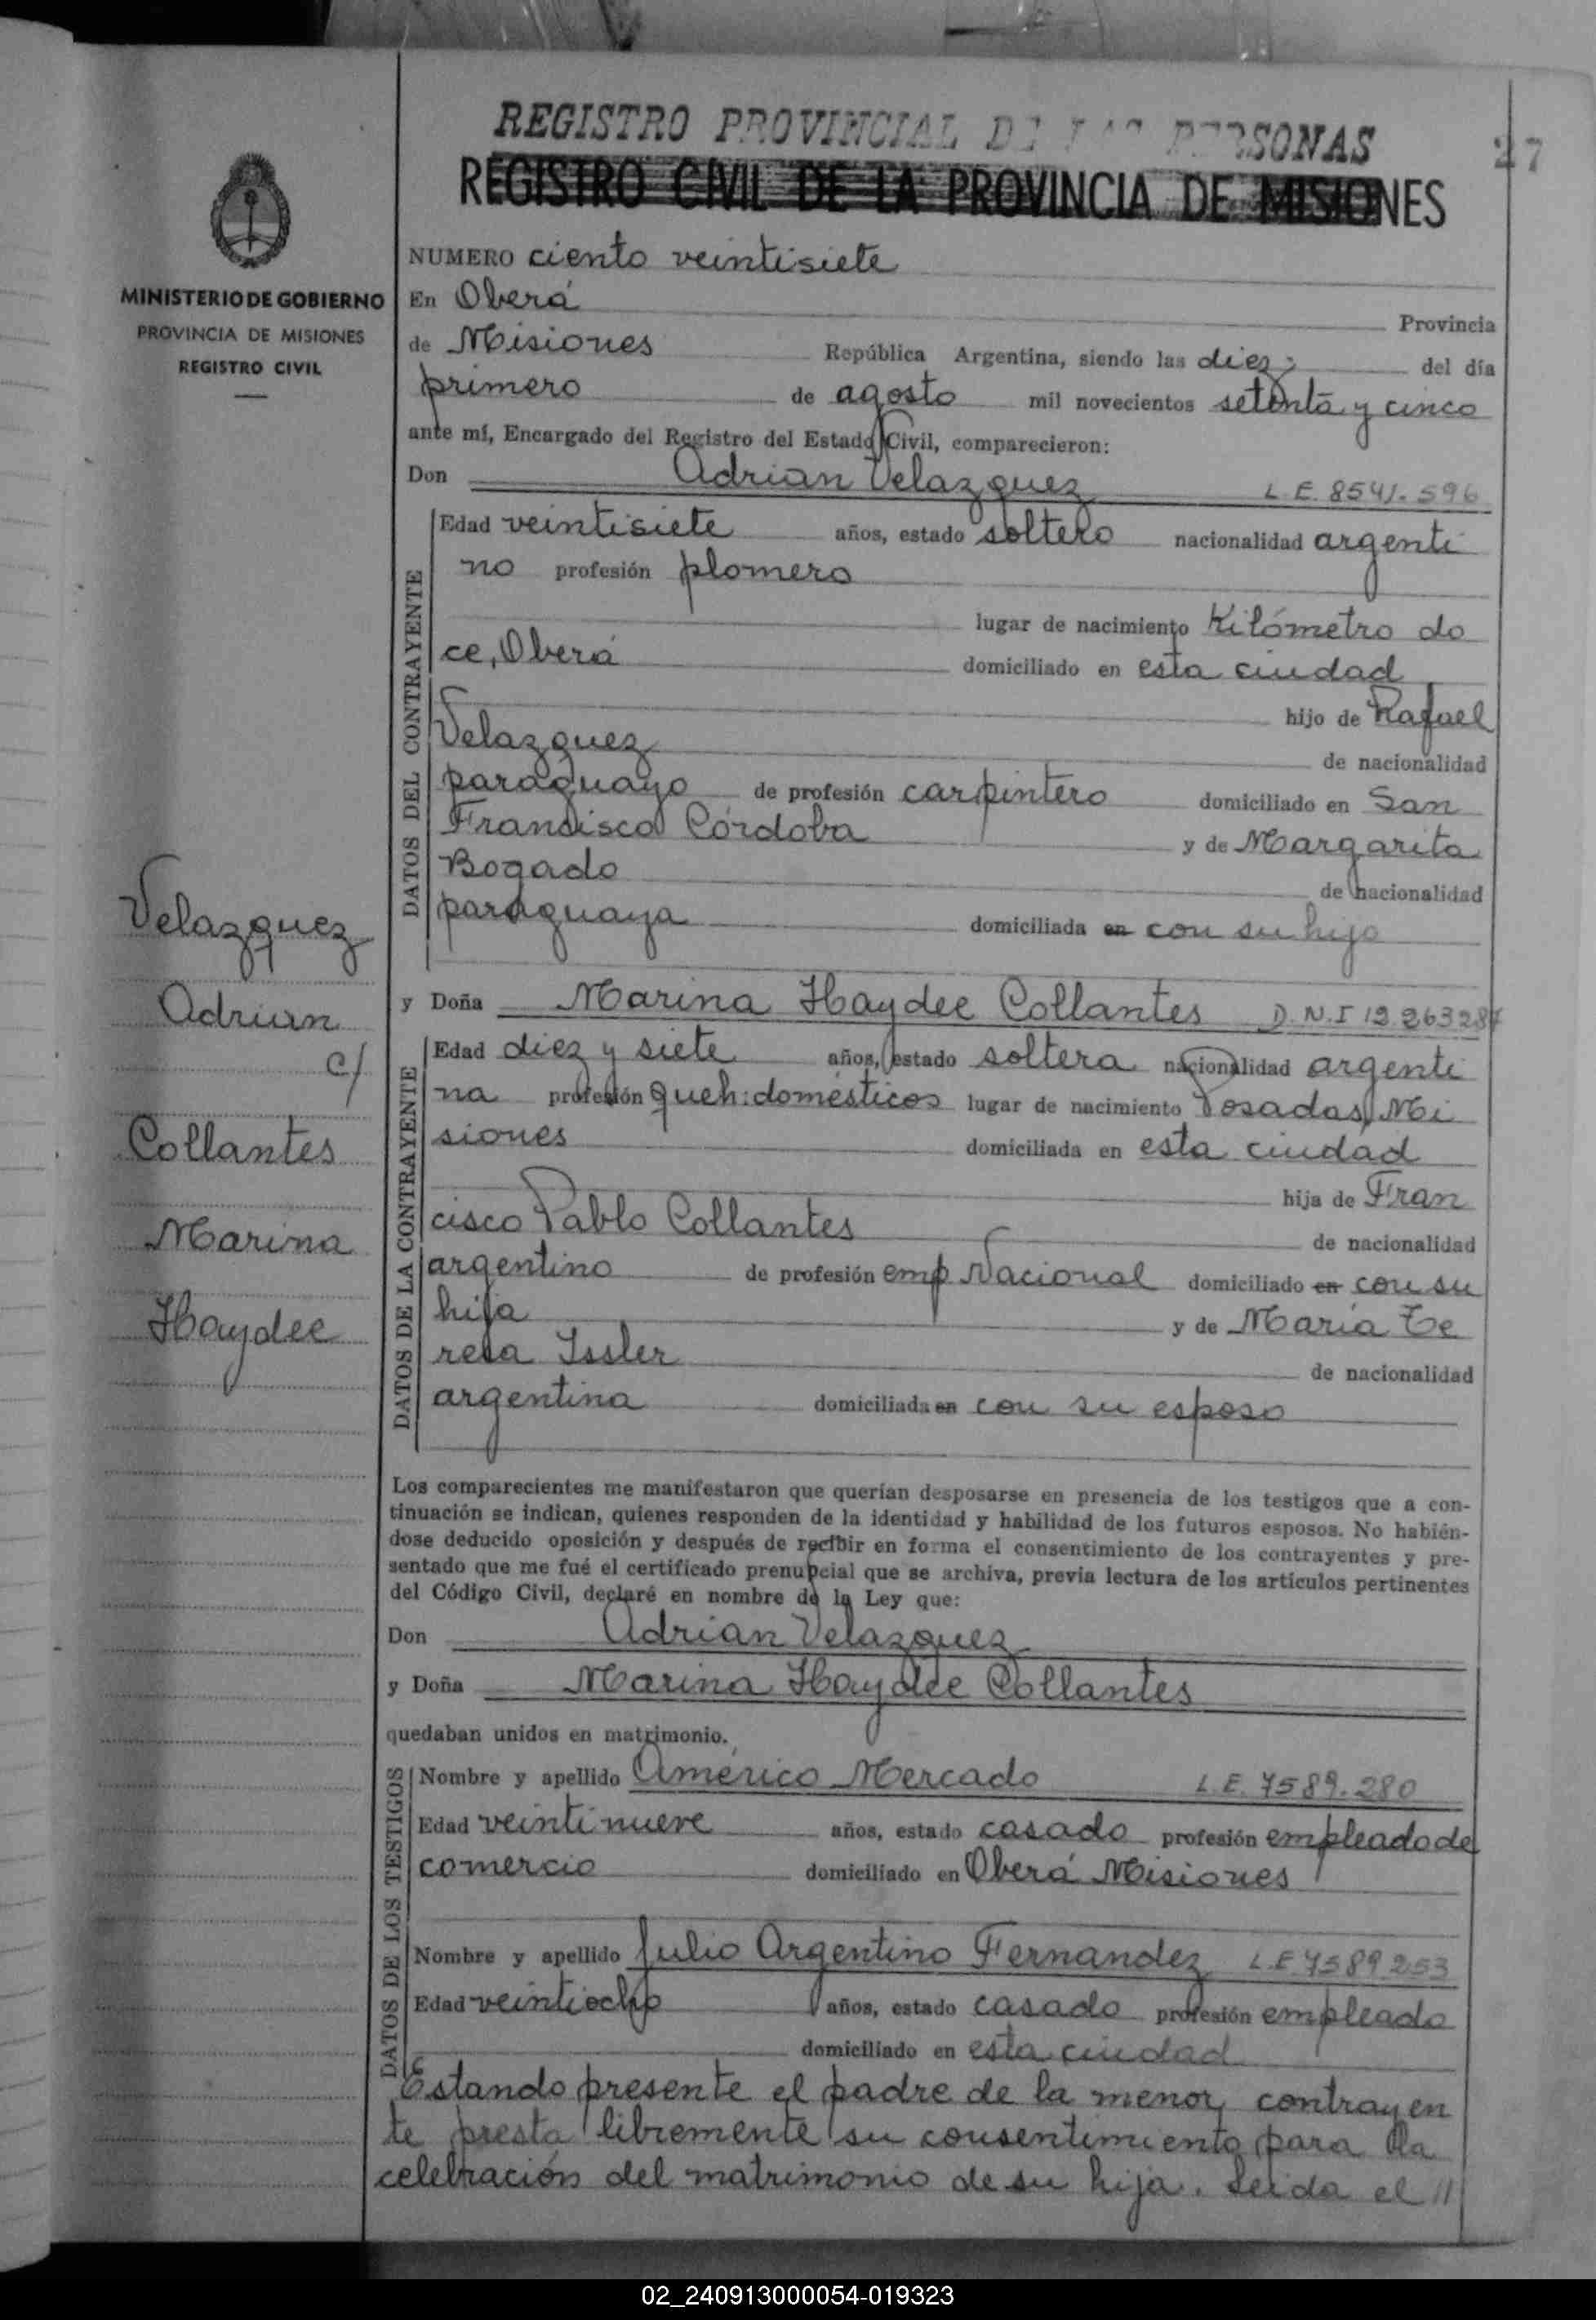 REGISTRO PROVINCIAL DE LAS PERSONAS
27
REGISTRO CIVIL DE LA PROVINCIA DE MISIONES
MINISTERIO DE GOBIERNO
PROVINCIA DE MISIONES
REGISTRO CIVIL
NUMERO ciento veintisiete
En Oberá
Provincia
de Misiones República Argentina, siendo las diez del día
primero de agosto mil novecientos setenta y cinco
ante mí, Encargado del Registro del Estado Civil, comparecieron:
Don Adrian Velazquez L.E. 8541.596
DATOS DEL CONTRAYENTE
Edad veintisiete años, estado soltero nacionalidad argenti
no profesión plomero
lugar de nacimiento Kilómetro do
ce, Oberá domiciliado en esta ciudad
hijo de Rafael
Velazquez de nacionalidad
paraguayo de profesión carpintero domiciliado en San
Francisco Córdoba y de Margarita
Bogado de nacionalidad
paraguaya domiciliada en con su hijo
y Doña Marina Haydee Collantes D.N.I 12.263287
DATOS DE LA CONTRAYENTE
Edad diez y siete años, estado soltera nacionalidad argenti
na profesión queh: domésticos lugar de nacimiento Posadas, Mi
siones domiciliada en esta ciudad
hija de Fran
cisco Pablo Collantes de nacionalidad
argentino de profesión emp Nacional domiciliado en con su
hija y de María Te
resa Issler de nacionalidad
argentina domiciliada en con su esposo
Velazquez
Adrian
c/
Collantes
Marina
Haydee
Los comparecientes me manifestaron que querían desposarse en presencia de los testigos que a con-
tinuación se indican, quienes responden de la identidad y habilidad de los futuros esposos. No habién-
dose deducido oposición y después de recibir en forma el consentimiento de los contrayentes y pre-
sentado que me fué el certificado prenupcial que se archiva, previa lectura de los artículos pertinentes
del Código Civil, declaré en nombre de la Ley que:
Don Adrian Velazquez
y Doña Marina Haydee Collantes
quedaban unidos en matrimonio.
DATOS DE LOS TESTIGOS
Nombre y apellido Américo Mercado L.E. 7589.280
Edad veintinueve años, estado casado profesión empleado de
comercio domiciliado en Oberá Misiones
Nombre y apellido Julio Argentino Fernandez L.E 7589253
Edad veintiocho años, estado casado profesión empleado
domiciliado en esta ciudad
Estando presente el padre de la menor contrayen
te presta libremente su consentimiento para la
celebración del matrimonio de su hija. Leída el //
02_240913000054-019323